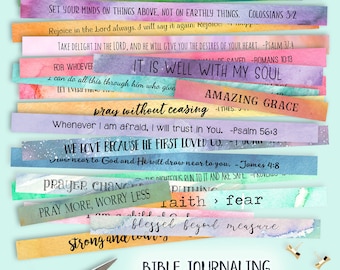 SET YOUR MINDS ON THINGS ABOVE, NOT ON EARTHLY THINGS. COLOSSIANS 3:2
Rejoice in the Lord always. I will say it again: Rejoice!
TAKE DELIGHT IN THE LORD, AND HE WILL GIVE YOU THE DESIRES OF YOUR HEART. -PSALM 37:4
FOR WHOEVER
IT IS WELL WITH MY SOUL
I can do all this through him who gives
AMAZING GRACE
pray without ceasing
Whenever I am afraid, I will trust in You. -Psalm 56:3
WE LOVE BECAUSE HE FIRST LOVED US.
Draw near to God and He will draw near to you. - James 4:8
PRAYER CHANGES
RUN TO IT AND ARE SAFE.
PRAY MORE, WORRY LESS
faith > fear
I am a child of
blessed beyond measure
strong and
BIBLE JOURNALING